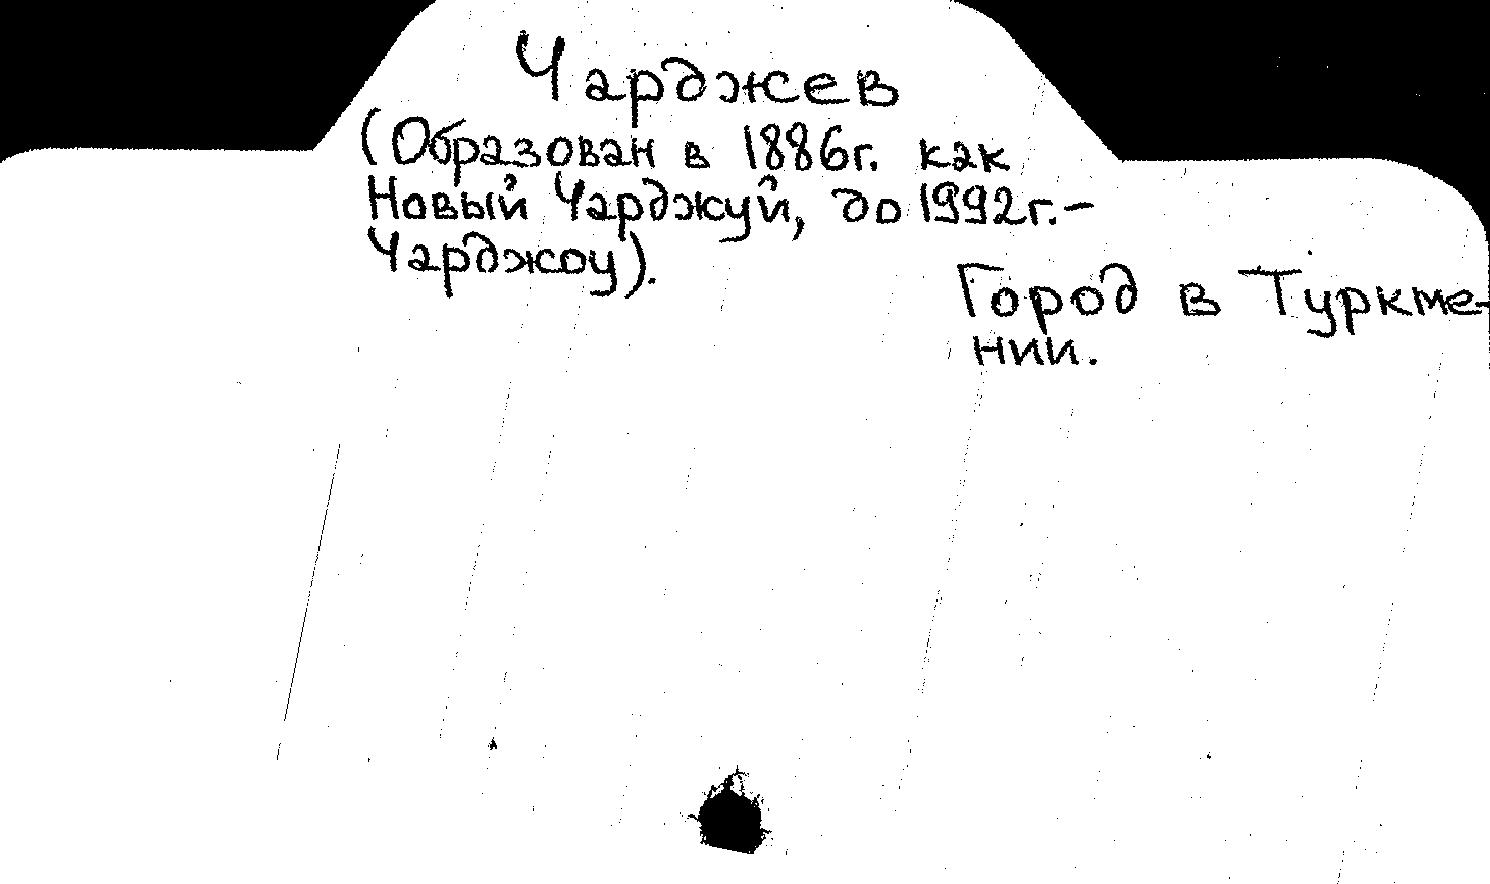 Чарджев
(Образован в 1886г. как
Новый Чарджуй, до 1992г.-
Чарджоу).
Город в Туркме-
нии.